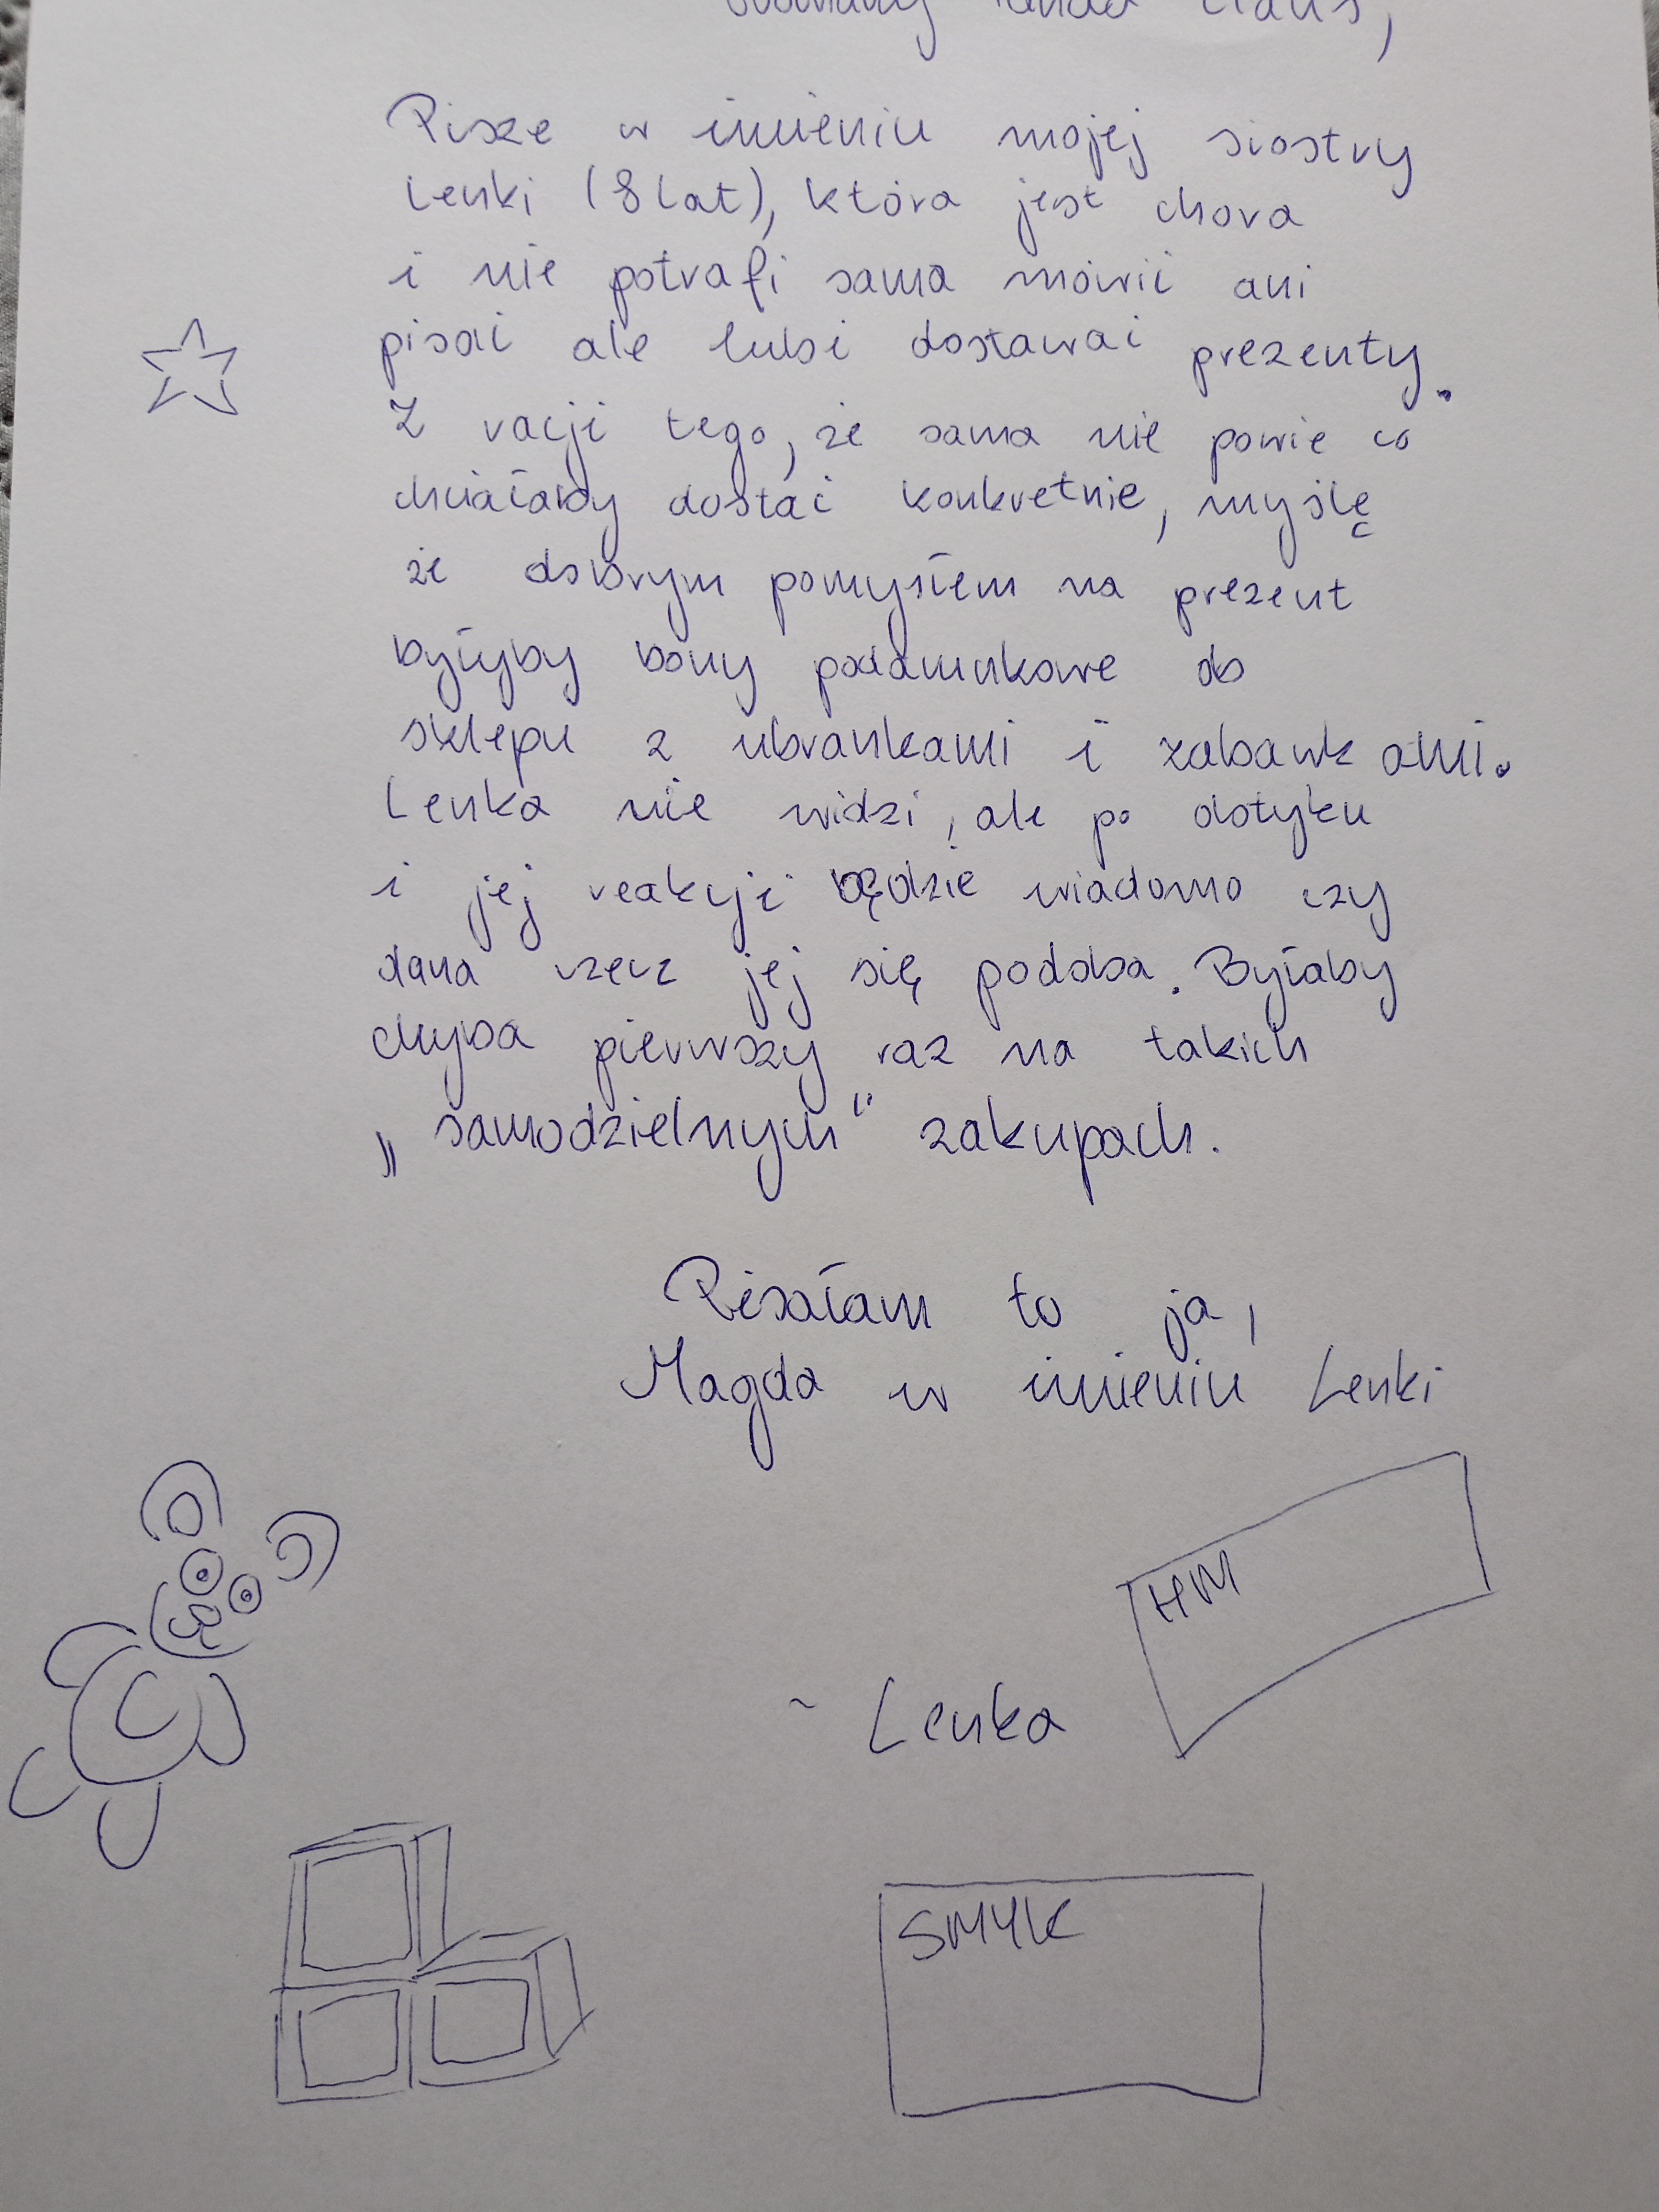 Piszę w imieniu mojej siostry
Lenki (8 lat), która jest chora
i nie potrafi sama mówić ani
pisać ale lubi dostawać prezenty.
Z racji tego, że sama nie powie co
chciałaby dostać konkretnie, myślę
że dobrym pomysłem na prezent
byłyby bony podarunkowe do
sklepu z ubrankami i zabawkami.
Lenka nie widzi, ale po dotyku
i jej reakcji będzie wiadomo czy
dana rzecz jej się podoba. Byłaby
chyba pierwszy raz na takich
„samodzielnych“ zakupach.
Pisałam to ja,
Magda w imieniu Lenki
HM
~ Lenka
SMYK